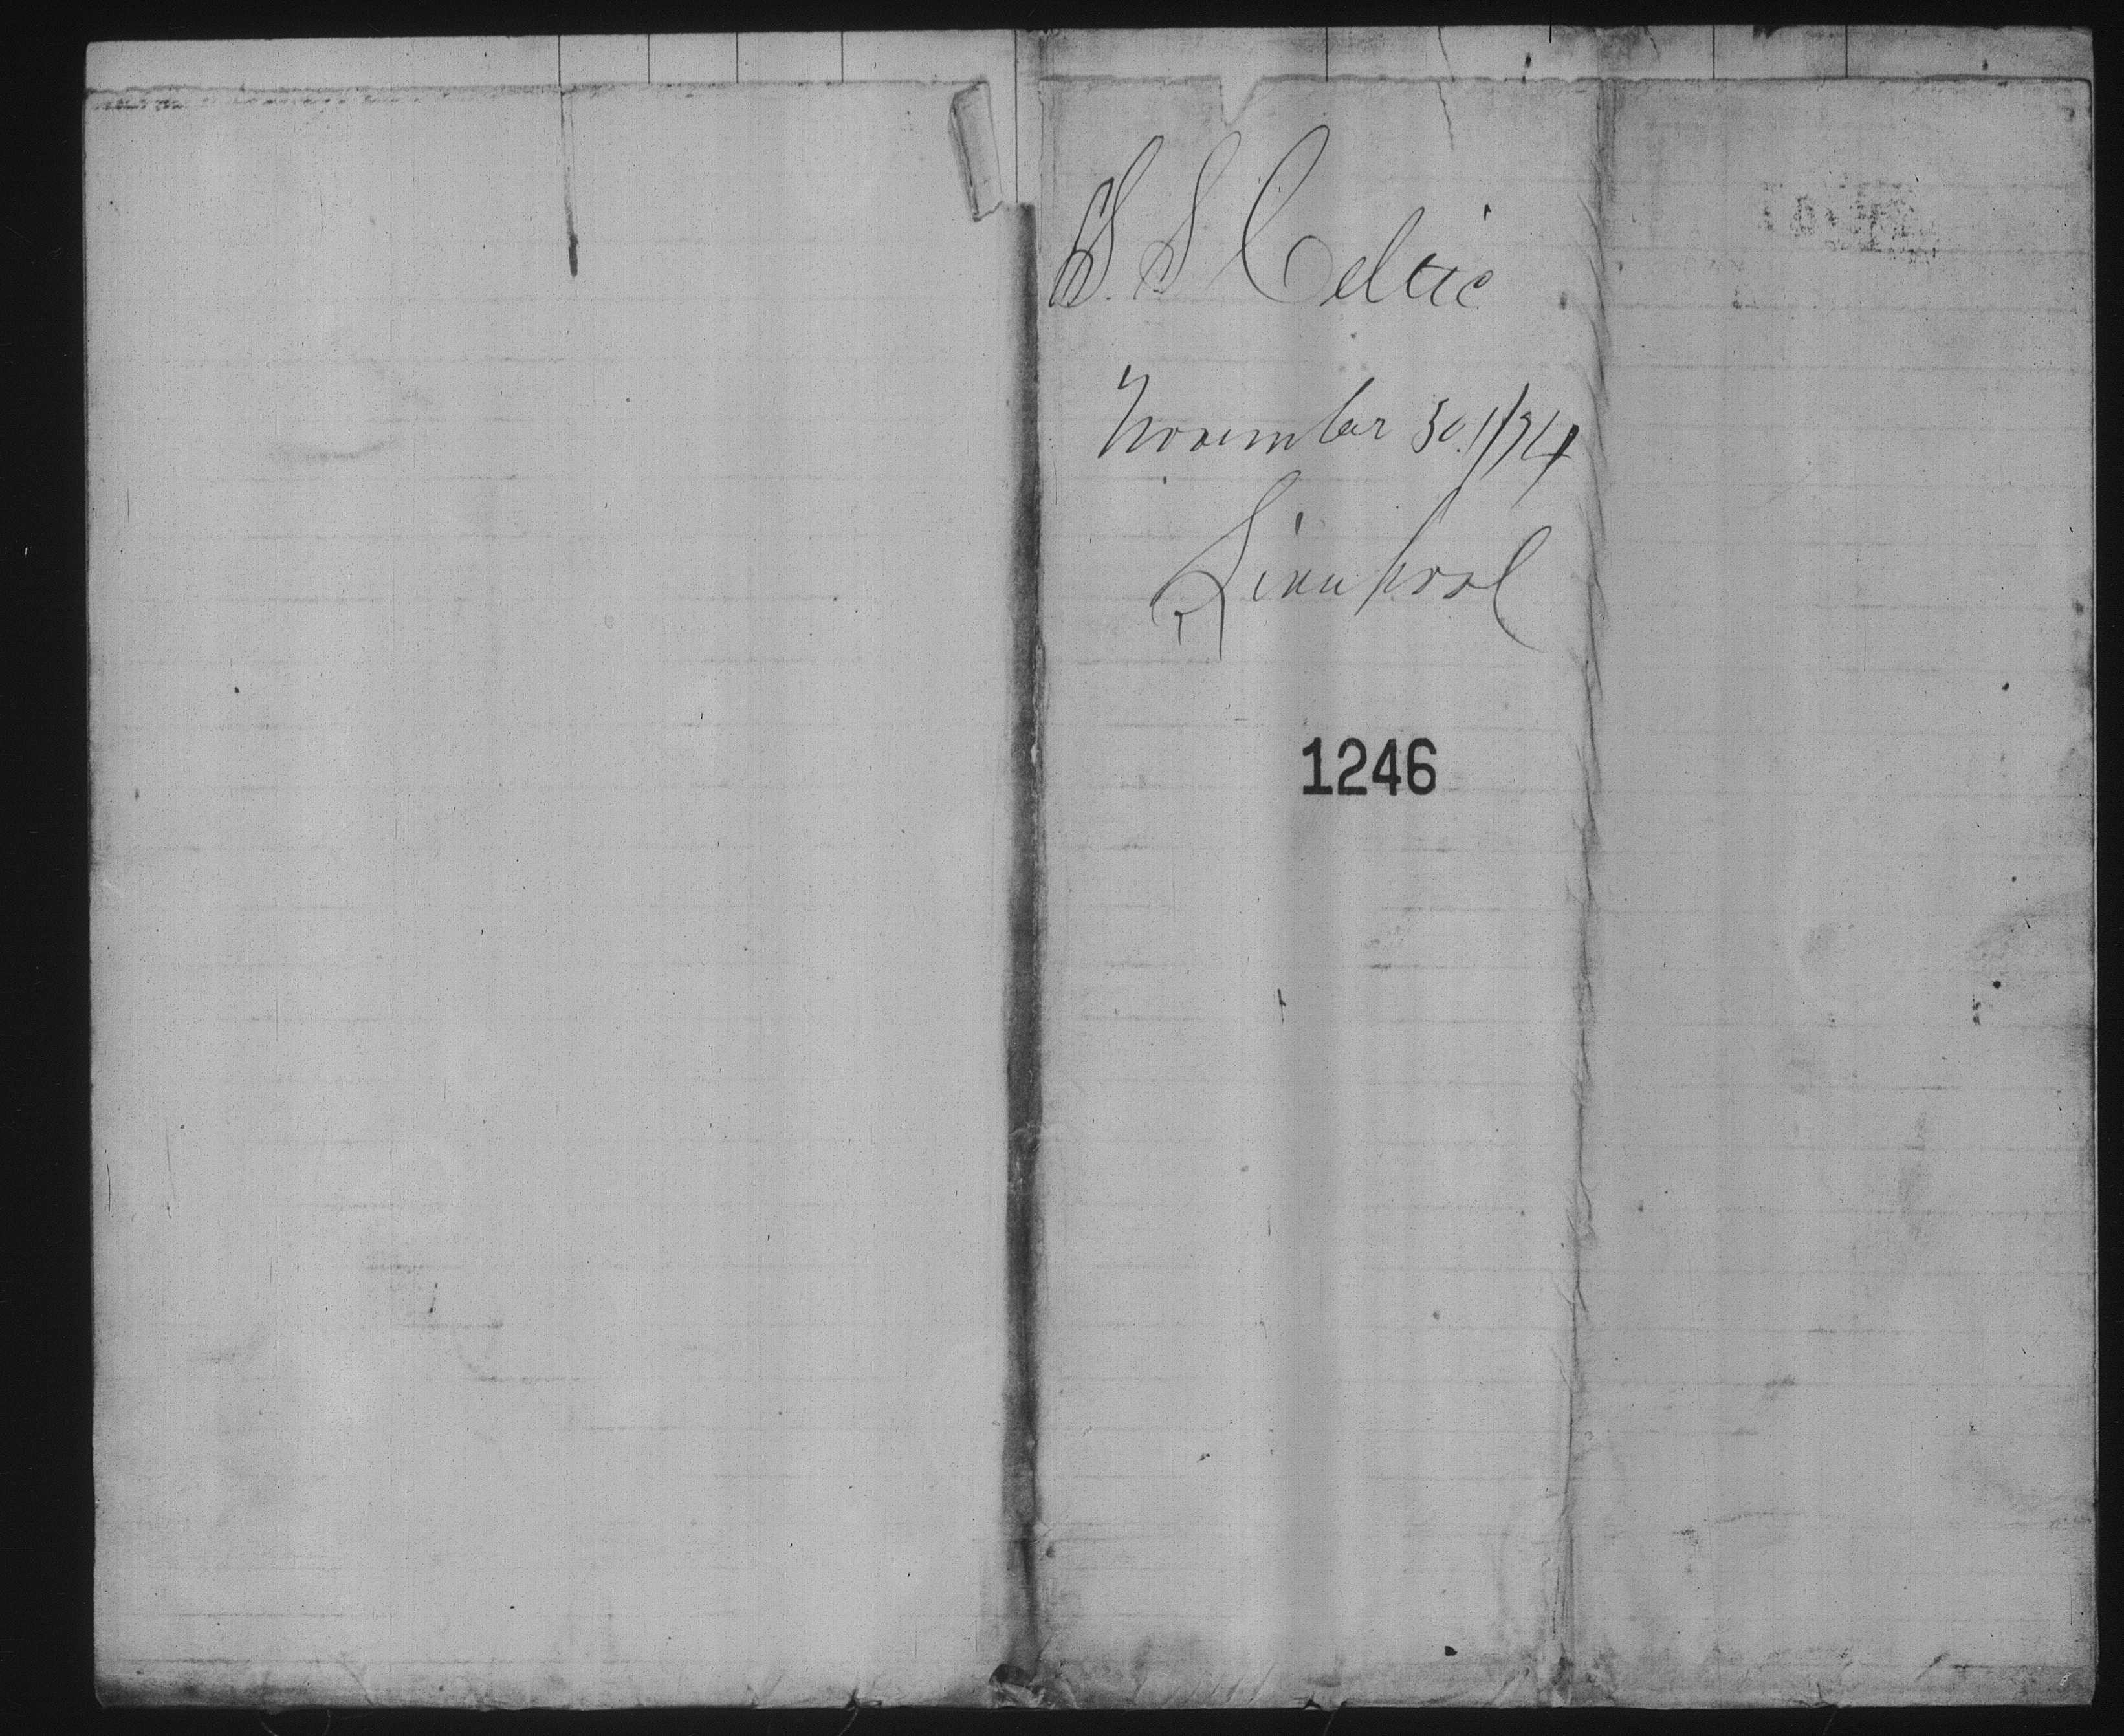 S. S Celtic
November 30./74
Liverpool
1246